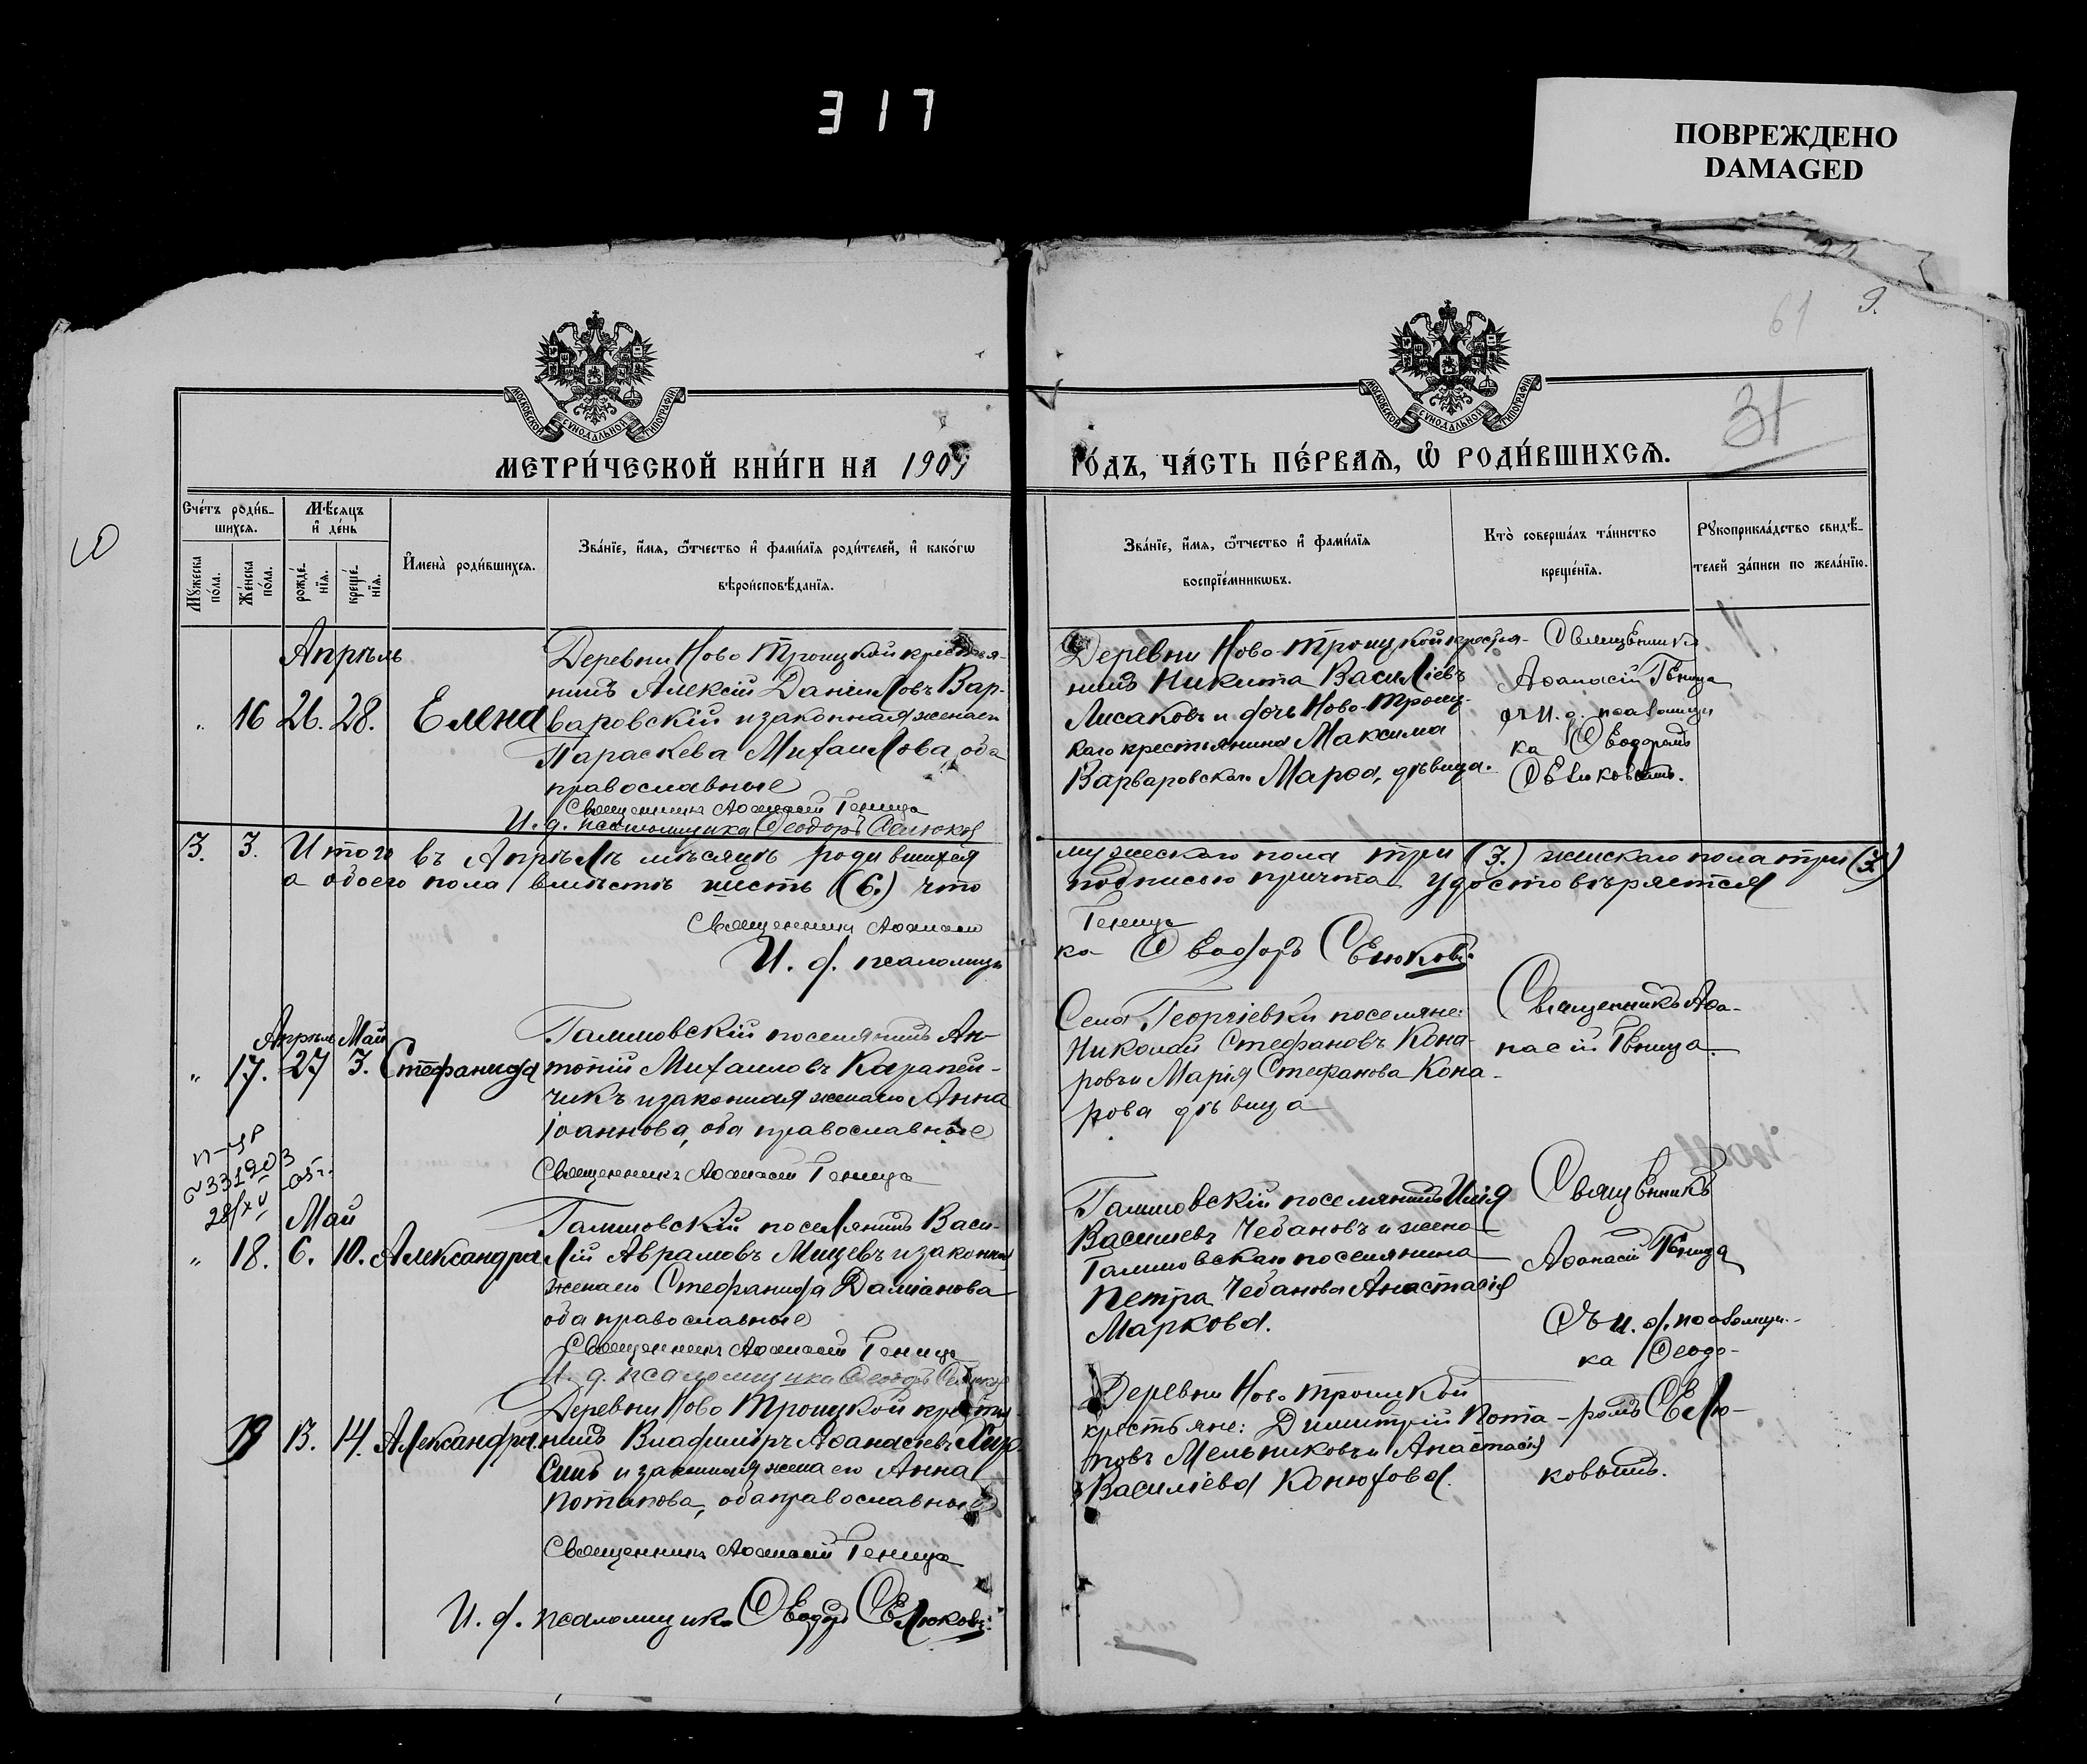 317
ПОВРЕЖДЕНО
DAMAGED
61 9.
31
МОСКОВСКОЙ СѴНОДАЛЬНОЙ ТИПОГРАФІИ
МОСКОВСКОЙ СѴНОДАЛЬНОЙ ТИПОГРАФІИ
МЕТРИ́ЧЕСКОЙ КНИ́ГИ НА 1909
ГО́ДЪ, ЧА́СТЬ ПЕ́РВАѦ, Ѽ РОДИ́ВШИХСѦ.
Сче́тъ роди́в-
шихсѧ.
Мꙋжеска по́ла.
Же́нска по́ла.
Мѣ́сѧцъ
и҆ де́нь
рожде́-
нїѧ.
креще́-
нїѧ.
И҆мена̀ роди́вшихсѧ.
Зва́нїе, и҆́мѧ, ѻ҆́тчество и҆ фами́лїѧ роди́телей, и҆ како́гѡ
вѣроисповѣ́данїѧ.
Зва́нїе, и҆́мѧ, ѻ҆́тчество и҆ фами́лїѧ
воспрїе́мникѡвъ.
Кто̀ соверша́лъ та́инство
креще́нїѧ.
Рꙋкоприкла́дство свидѣ́-
телей за́писи по жела́нїю.
Апрѣль
„ 16 26. 28. Елена
Деревни Ново Троицкой крестья-
нинъ Алексій Даніиловъ Вар-
варовскій и законная жена его
Параскева Михаилова, оба
православные
Священникъ Аѳанасій Геница
И. д. псаломщика Ѳеодоръ Селюковъ
Деревни Ново-Троицкой крестья-
нинъ Никита Василіевъ
Лисаковъ и дочь Ново-Троиц-
каго крестьянина Максима
Варваровскаго Марѳа, дѣвица.
Священникъ
Аѳанасій Геница
съ и. д. псаломщи
ка Ѳеодоромъ
Селюковымъ.
3. 3. Итого въ Апрѣлѣ мѣсяцѣ родившихся
мужескаго пола три (3.) женскаго пола три (3.)
а обоего пола вмѣстѣ шесть (6.) что
подписью причта удостовѣряется
Священникъ Аѳанасій
Геница
И. д. псаломщи
ка Ѳеодоръ Селюковъ.
Апрѣль Май
„ 17. 27 3. Стефанида
Галицовскій поселянинъ Ан-
тоній Михаиловъ Карапей-
чикъ и законная жена его Анна
Іоаннова, оба православные
Священникъ Аѳанасій Геница
Села Георгіевки поселяне:
Николай Стефановъ Кона-
ровъ и Марія Стефанова Кона-
рова дѣвица
Священникъ Аѳа-
насій Геница.
Май
„ 18. 6. 10. Александра
поселянинъ Васи-
лій Аврамовъ Мицевъ и законная
жена его Стефанида Даміанова
оба православные
Священникъ Аѳанасій Геница
И. д. псаломщика Ѳеодоръ Селюковъ
поселянинъ Илія
Василіевъ Чебановъ и жена
поселянина
Петра Чебанова Анастасія
Маркова.
Священникъ
Аѳанасій Геница
Съ и. д. псаломщи-
ка Ѳеодо-
ромъ Селю-
ковымъ.
19 13. 14. Александра.
Деревни Ново Троицкой крестья
нинъ Владиміръ Аѳанасіевъ
и законная жена его Анна
Потапова, оба православные
Священникъ Аѳанасій Геница
И. д. псаломщика Ѳеодоръ Селюковъ.
Деревни Ново Троицкой
крестьяне: Димитрій Пота-
повъ Мельниковъ и Анастасія
Василіева Конюхова.